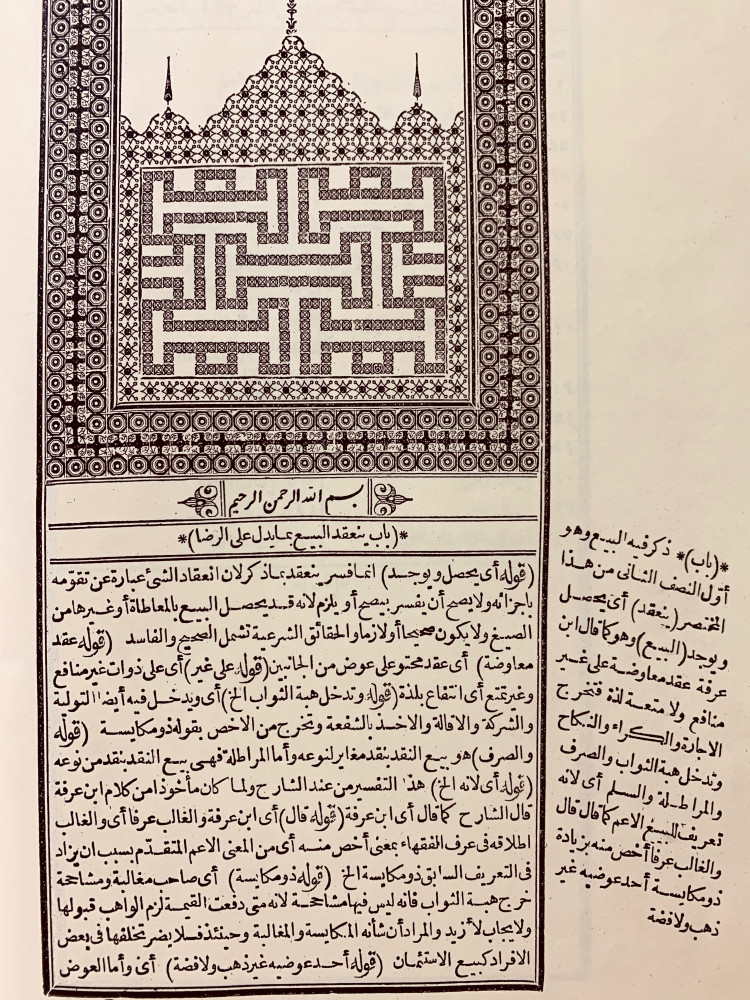 بسم الله الرحمن الرحيم
*(باب ينعقد البيع بما يدل على الرضا)*
(قوله أى يحصل ويوجد) انما فسر ينعقد بما ذكر لان انعقاد الشئ عبارة عن تقومه
باجزائه ولا يصح أن يفسر بيصح أو يلزم لانه قد يحصل البيع بالمعاطاة أو غيرها من
الصيغ ولا يكون صحيحا أو لازما والحقائق الشرعية تشمل الصحيح والفاسد (قوله عقد
معاوضة) أى عقد محتو على عوض من الجانبين (قوله على غير) أى على ذوات غير منافع
وغير تمتع أى انتفاع بلذة (قوله وتدخل هبة الثواب الخ) أى ويدخل فيه أيضا التولية
والشركة والاقالة والاخذ بالشفعة وتخرج من الاخص بقوله ذو مكايسة (قوله
والصرف) هو بيع النقد بنقد مغاير لنوعه وأما المراطلة فهى بيع النقد بنقد من نوعه
(قوله أى لانه الخ) هذا التفسير من عند الشارح ولما كان مأخوذا من كلام ابن عرفة
قال الشارح كما قال أى ابن عرفة (قوله قال) أى ابن عرفة والغالب عرفا أى والغالب
اطلاقه فى عرف الفقهاء بمعنى أخص منه أى من المعنى الاعم المتقدم بسبب ان يزاد
فى التعريف السابق ذو مكايسة الخ (قوله ذو مكايسة) أى صاحب مغالبة ومشاححة
خرج هبة الثواب فانه ليس فيها مشاححة لانه متى دفعت القيمة لزم الواهب قبولها
ولا يجاب لأزيد والمراد أن شأنه المكايسة والمغالبة وحينئذ فلا يضر تخلفها فى بعض
الافراد كبيع الاستئمان (قوله أحد عوضيه غير ذهب ولا فضة) أى وأما العوض
*(باب)* ذكر فيه البيع وهو
أول النصف الثانى من هذا
المختصر (ينعقد) أى يحصل
ويوجد (البيع) وهو كما قال ابن
عرفة عقد معاوضة على غير
منافع ولا متعة لذة فتخرج
الاجارة والكراء والنكاح
وتدخل هبة الثواب والصرف
والمراطلة والسلم أى لانه
تعريف للبيع الاعم كما قال قال
والغالب عرفا أخص منه بزيادة
ذو مكايسة أحد عوضيه غير
ذهب ولا فضة